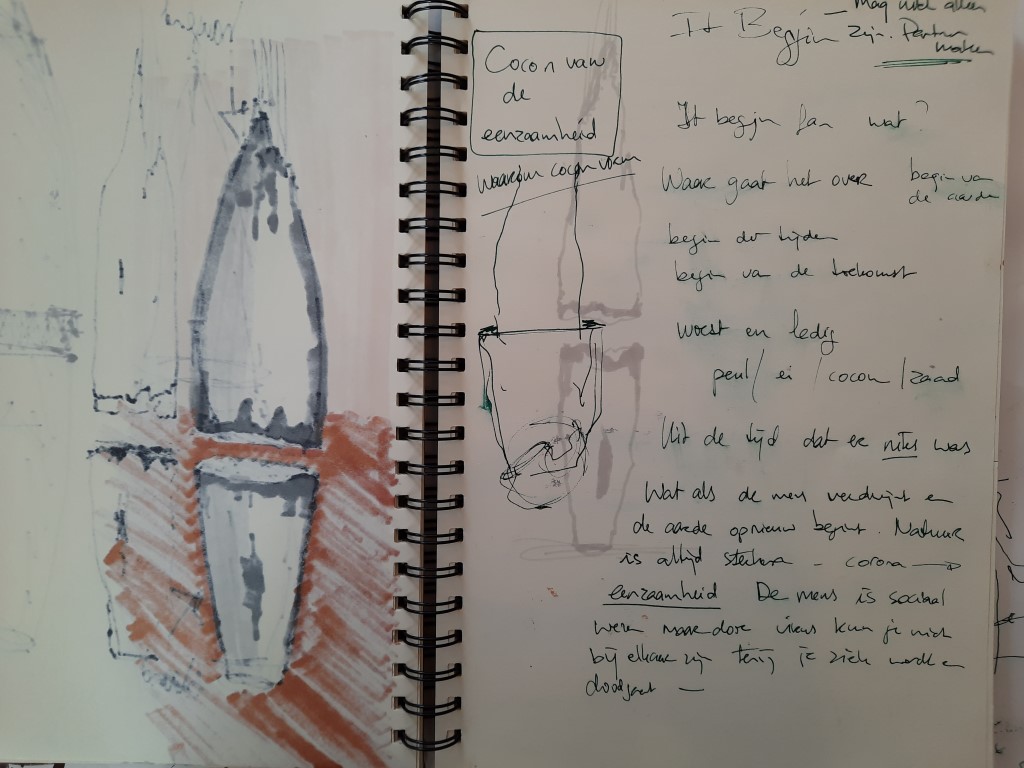 Cocon van
de
eenzaamheid
Waarom coconvorm
It Begjin — Mag niet alleen
zijn. Partner
maken
It begjin fan wat?
Waar gaat het over begin van
de aarde
begin der tijden
begin van de toekomst
Woest en ledig
peul / ei / cocon / zaad
Uit de tijd dat er niets was
Wat als de mens verdwijnt en
de aarde opnieuw begint. Natuur
is altijd sterker – corona →
eenzaamheid De mens is sociaal
wezen maar door virus kun je niet
bij elkaar zijn tenzij je ziek wordt en
doodgaat —